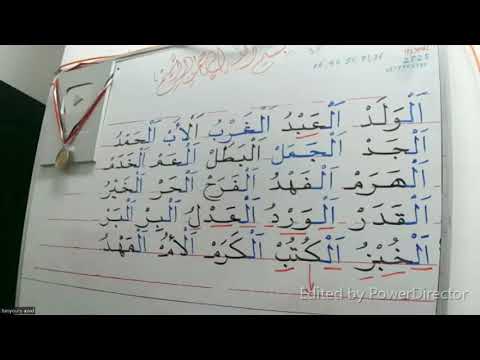 2525
اَلْوَلَدْ اَلْعَبْدُ اَلْغَرْبُ اَلْأَبُ اَلْحَمْدُ
اَلْجَدْ اَلْجَمَلْ اَلْبَطَلْ اَلْعَمْ اَلْخَدَمْ
اَلْهَرَمْ اَلْفَهْدُ اَلْفَرَحْ اَلْحَرْ اَلْخَيْرُ
اَلْقَدَرْ اَلْوَرْدُ اَلْعَدْلُ اَلْبِرْ اَلْبَرْ
اَلْخُبْزُ اَلْكُتُبْ اَلْكَرَمْ اَلْأُمْ اَلْمَهْدُ
Edited by PowerDirector